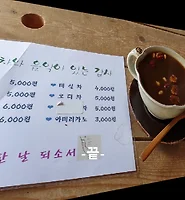 치와 음악이 있는 감사
5,000원 ♥ 대잎차 4,000원
5,000원 ♥ 오디차 5,000원
6,000원 ♥ 5,000원
6,000원 ♥ 아메리카노 3,000원
한 날 되소서
-끝-